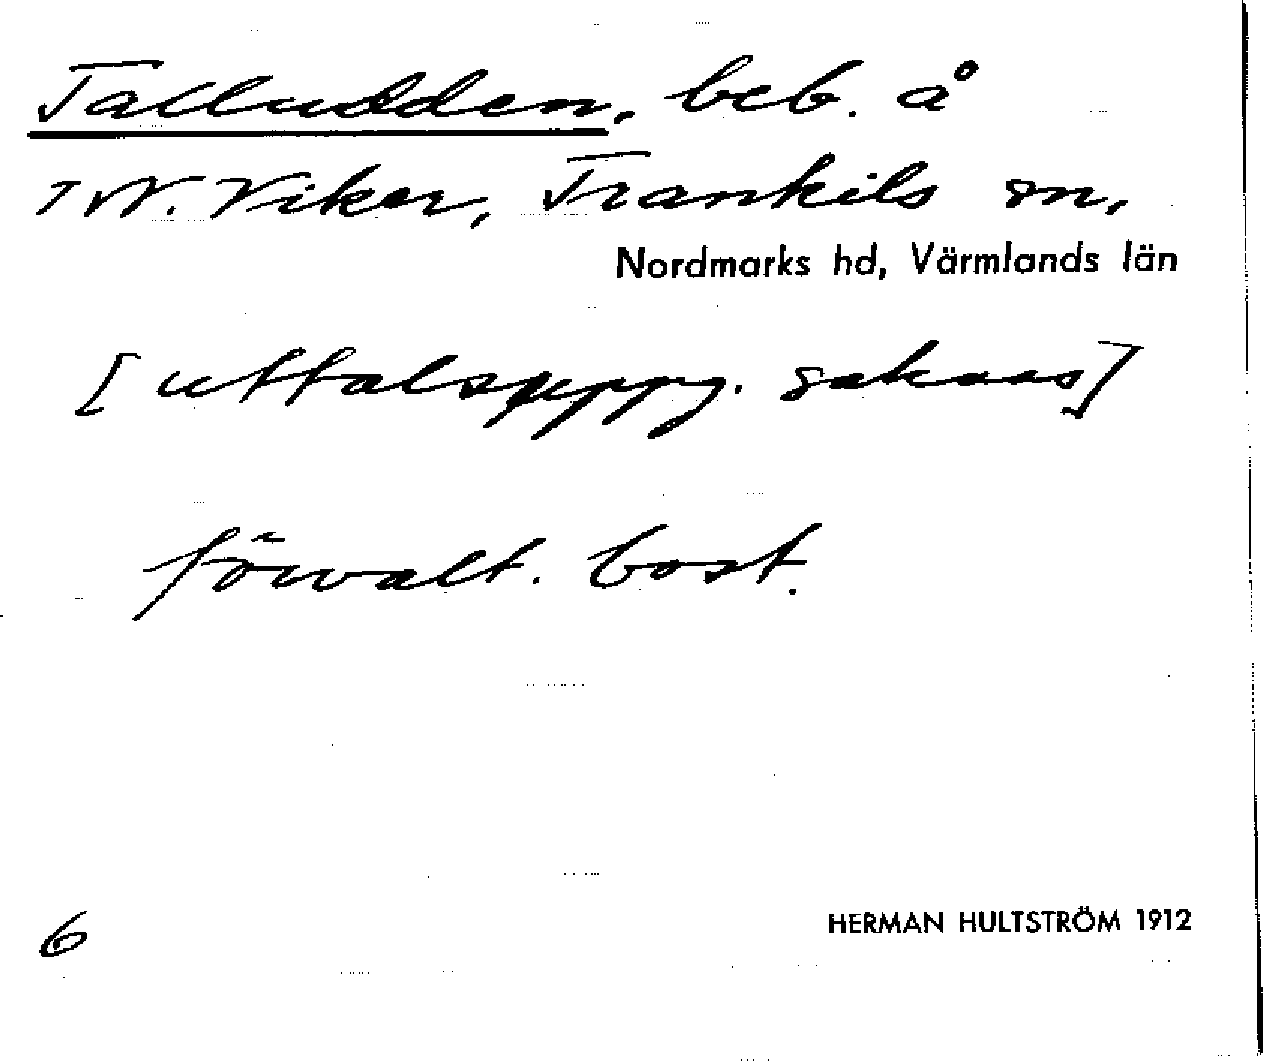 Talludden, beb. å
1 N. Viker, Trankils sn,
Nordmarks hd, Värmlands län
[uttalsuppg. saknas]
förvalt. bost.
6
HERMAN HULTSTRÖM 1912